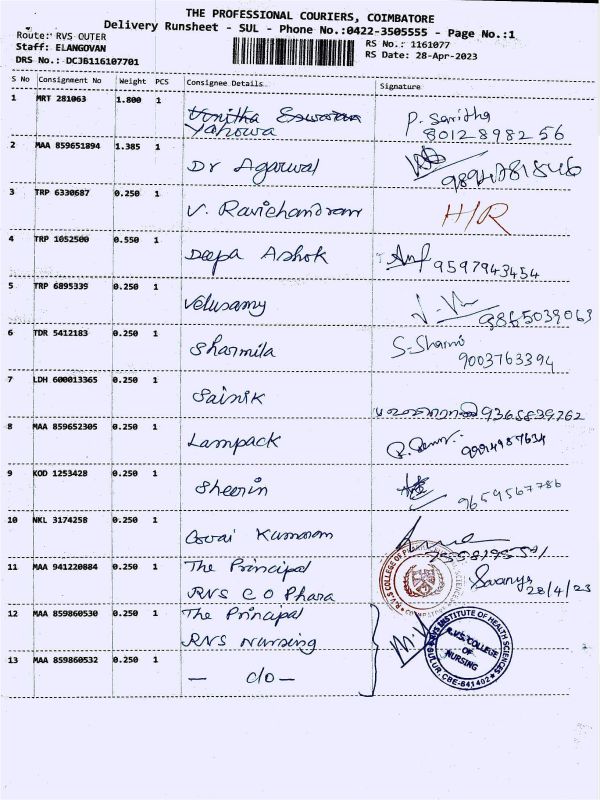 THE PROFESSIONAL COURIERS, COIMBATORE
Delivery Runsheet - SUL - Phone No.:0422-3505555 - Page No.:1
Route: RVS OUTER
Staff: ELANGOVAN
DRS No.: DCJB116107701
RS No.: 1161077
RS Date: 28-Apr-2023
S No Consignment No Weight PCS Consignee Details Signature
1 MRT 281063 1.800 1 Yahowa P. Saritha 8012898256
2 MAA 859651894 1.385 1 Dr Agarwal 9894781546
3 TRP 6330687 0.250 1 V. Ravichandran H/R
4 TRP 1052500 0.550 1 Deepa Ashok 9597943454
5 TRP 6895339 0.250 1 Velusamy 9865039063
6 TDR 5412183 0.250 1 Sharmila S-Sharmi 9003763394
7 LDH 600013365 0.250 1 Sainik 9365839262
8 MAA 859652305 0.250 1 Lampack
9 KOD 1253428 0.250 1 Sheerin 9659567786
10 NKL 3174258 0.250 1 Kumaram
11 MAA 941220884 0.250 1 The Principal
RVS C O Phara 28/4/23
12 MAA 859860530 0.250 1 The Principal
RVS Nursing
13 MAA 859860532 0.250 1 — c/o —
R.V.S. COLLEGE
OF
NURSING
RVS INSTITUTE OF HEALTH SCIENCES
SULUR, CBE-641402